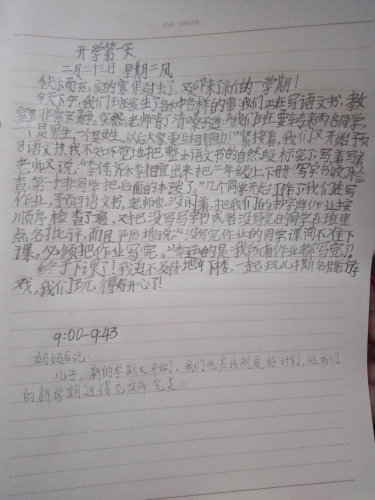 LOVE FOREVER
开学第一天
二月二十三日 星期二 风
快乐而充实的寒假过去了,又迎来了新的一学期!
今天下午,我们班发生了各种各样的事!我们正在写语文书,教
室里非常安静。突然,老师清了清嗓子说:“我们班要转来两名同学,
一个是男生,一个是女生,以后大家要互相帮助!”紧接着,我们又开始预
习语文书,我不知不觉地把整本语文书的自然段标完了,写着写着
老师又说:“李信齐李相宜出来把二年级上下册写字书收上来检
查,第一排同学把后面的本改了。”几个同学开始工作了我们还写
作业,予习语文书,老师也没闲着,把我们的写字册作业按
顺序检查了遍,又把没写写字书或者没写完的同学在班里
点名批评,而且严厉地说:“没写完作业的同学课间不准下
课,必须把作业写完。”幸运的是:我所有作业都写完了!
终于下课了!我迫不及待地下楼,一起玩儿
戏,我们玩得好开心了!
9:00-9:43
妈妈后记:
儿子,新的学期又开始,我们也应该制定好计划,让我们
的新学期过得充实而完美!